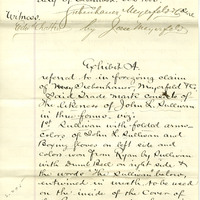 Witness.
by Jacob Meyerfeld
Exhibit A
referred to in foregoing claim
of Messrs Siebenhauer, Meyerfeld & Co
Said Trade mark consists of
The likeness of John L. Sullivan
in three forms viz:
1st Sullivan with folded arms
colors of John L. Sullivan and
Boxing gloves on left side and
colors won from Ryan by Sullivan
with Drum Bell on right side &
the words "The Sullivan" below,
entwined in wreath, to be used
on the inside of the Cover of